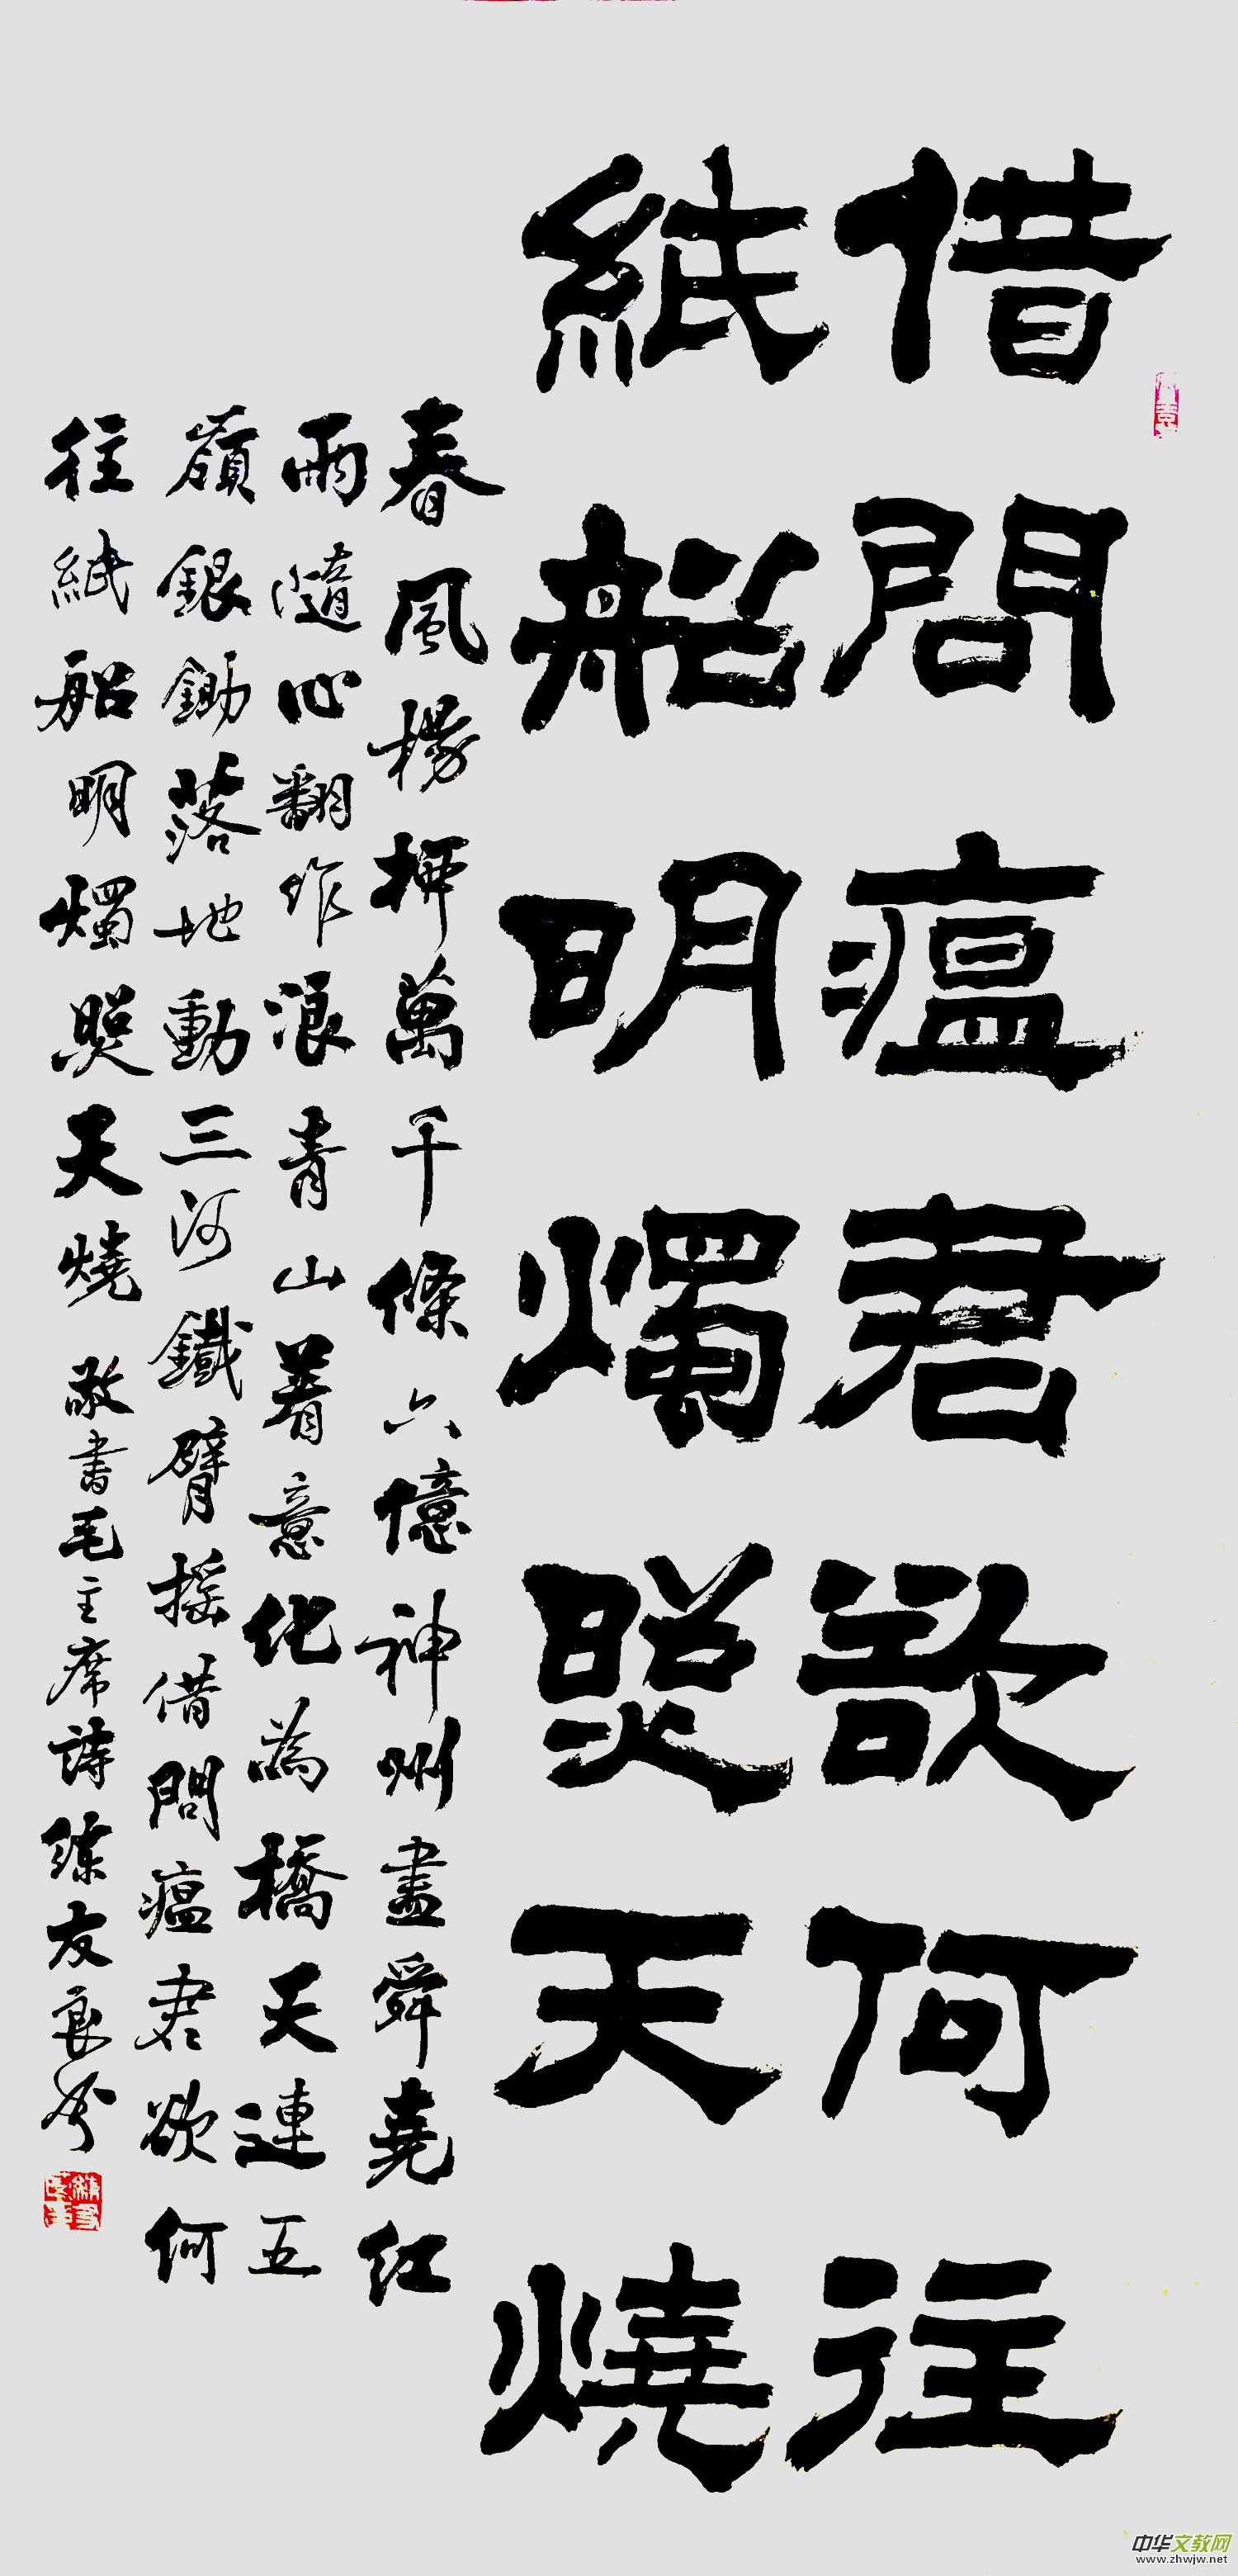 借問瘟君欲何往
紙船明燭照天燒
春風楊柳萬千條六億神州盡舜堯紅
雨隨心翻作浪青山着意化為橋天連五
嶺銀鋤落地動三河鐵臂搖借問瘟君欲何
往紙船明燭照天燒 敬書毛主席詩 友良書
中华文教网
www.zhwjw.net